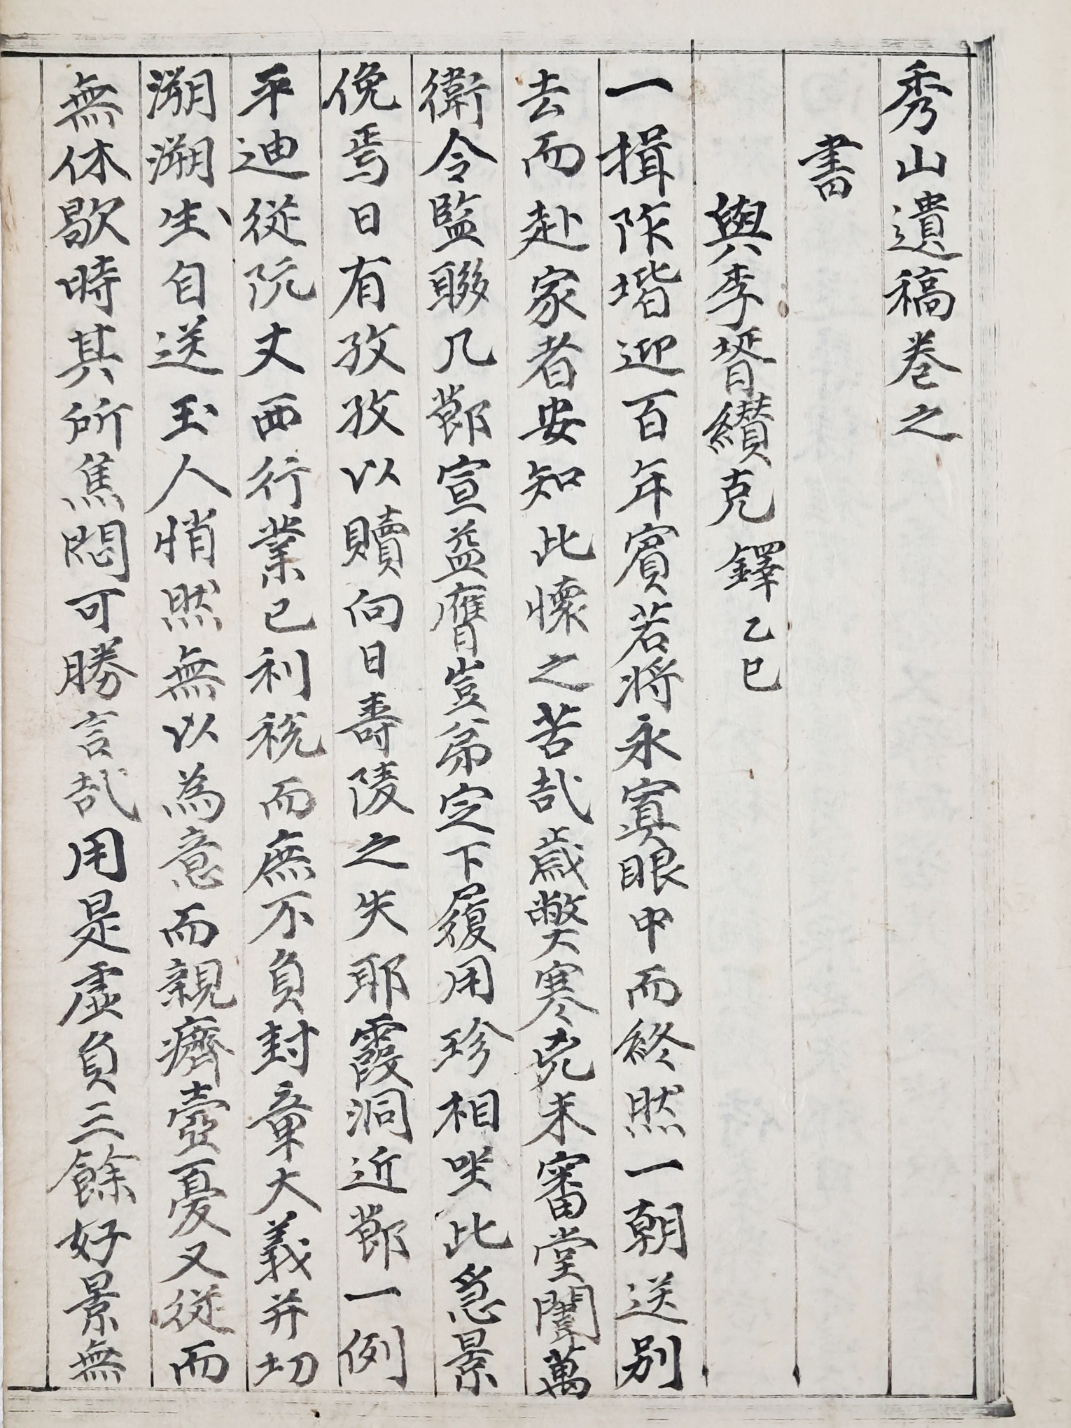 秀山遺稿卷之
書
與李胥纘克鐸乙巳
一揖阼堦迎百年賓若將永寘眼中而終然一朝送別
去而赴家者安知此懷之苦哉歲獘寒兇未審堂闈萬
衛令監聯几節宣益膺豈弟定下履用珍相唑此急景
俛焉日有孜孜以贖向日壽陵之失耶霞洞近節一例
平迪從阮丈西行業已利稅而庶不負封章大義并切
溯溯生自送玉人悄然無以為意而親癠壺憂又從而
無休歇時其所焦悶可勝言哉用是虛負三餘好景無